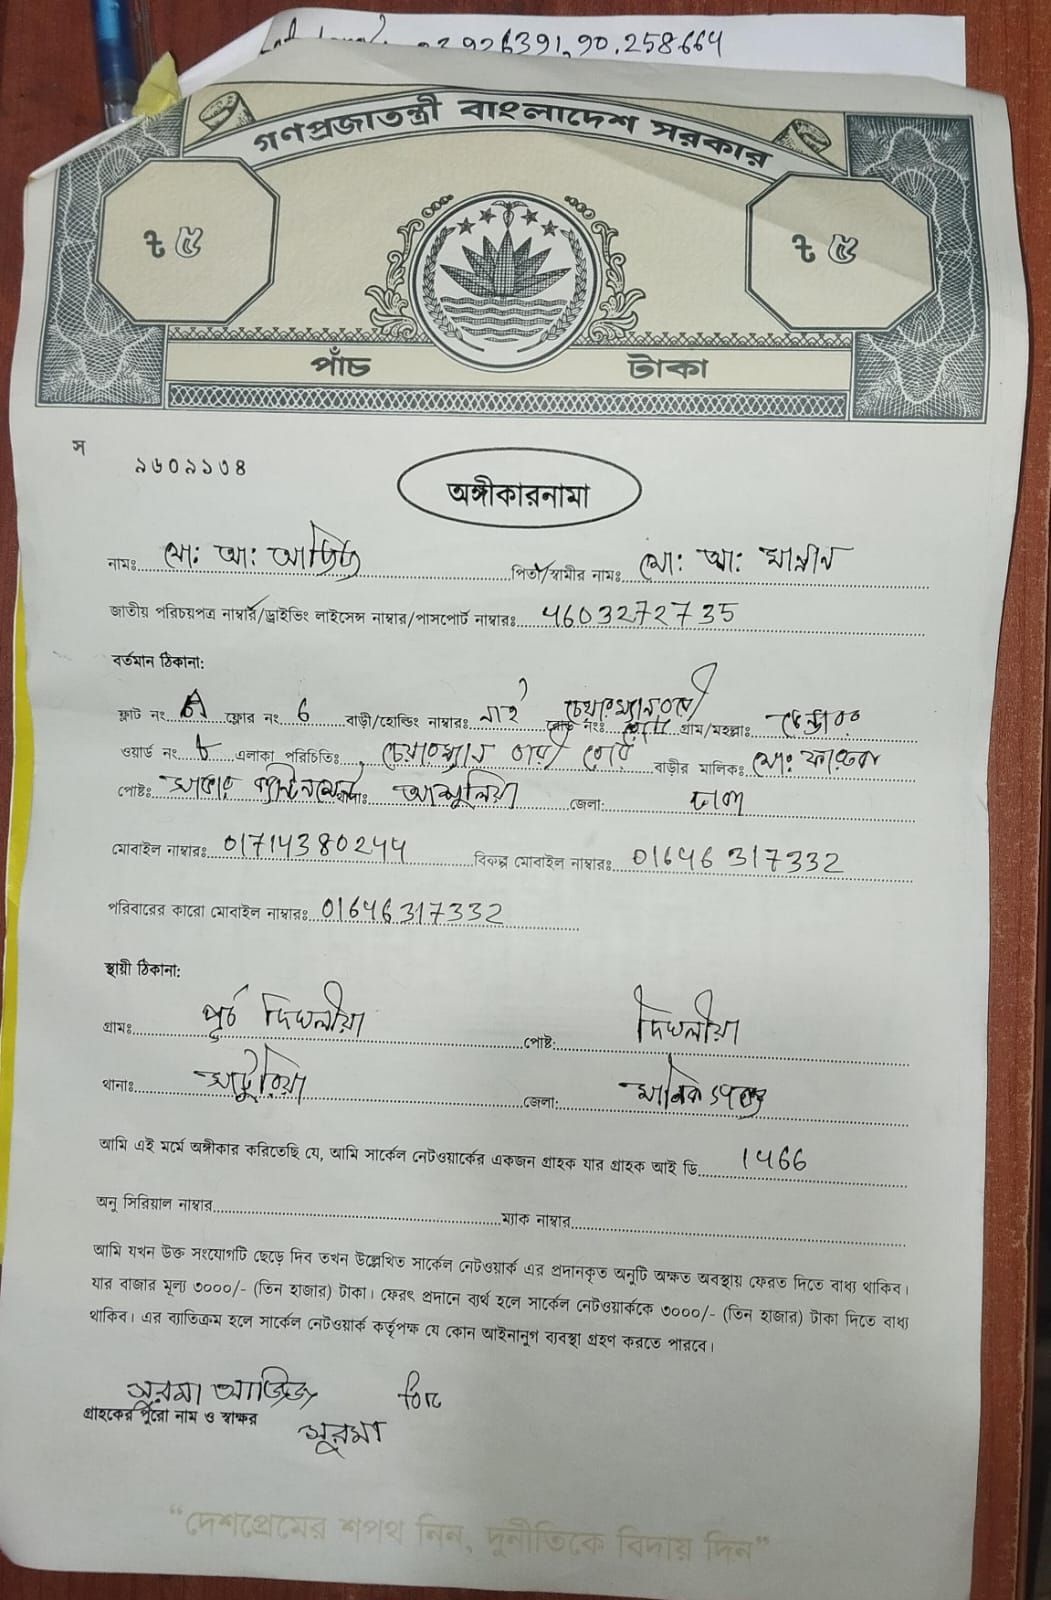 23.926391, 90.258664
গণপ্রজাতন্ত্রী বাংলাদেশ সরকার
৳ ৫ ৳ ৫
পাঁচ টাকা
স
৯৬০৯১৩৪
অঙ্গীকারনামা
নামঃ মো: আ: আজিজ পিতা/স্বামীর নামঃ মো: আ: মান্নান
জাতীয় পরিচয়পত্র নাম্বার/ড্রাইভিং লাইসেন্স নাম্বার/পাসপোর্ট নাম্বারঃ 4603272735
বর্তমান ঠিকানা:
ফ্লাট নং A ফ্লোর নং 6 বাড়ী/হোল্ডিং নাম্বারঃ নাই রোড নং: চেয়ারম্যান বাড়ী রোড গ্রাম/মহল্লাঃ
ওয়ার্ড নং ৮ এলাকা পরিচিতিঃ চেয়ারম্যান বাড়ী রোড বাড়ীর মালিকঃ মো:
পোষ্টঃ সাভার ক্যান্টনমেন্ট থানাঃ আশুলিয়া জেলা: ঢাকা
মোবাইল নাম্বারঃ 01714380244 বিকল্প মোবাইল নাম্বারঃ 01646317332
পরিবারের কারো মোবাইল নাম্বারঃ 01646317332
স্থায়ী ঠিকানা:
গ্রামঃ পূর্ব দিঘলীয়া পোষ্ট: দিঘলীয়া
থানাঃ সাটুরিয়া জেলা: মানিকগঞ্জ
আমি এই মর্মে অঙ্গীকার করিতেছি যে, আমি সার্কেল নেটওয়ার্কের একজন গ্রাহক যার গ্রাহক আই ডি 1466
অনু সিরিয়াল নাম্বার ম্যাক নাম্বার
আমি যখন উক্ত সংযোগটি ছেড়ে দিব তখন উল্লেখিত সার্কেল নেটওয়ার্ক এর প্রদানকৃত অনুটি অক্ষত অবস্থায় ফেরত দিতে বাধ্য থাকিব।
যার বাজার মূল্য ৩০০০/- (তিন হাজার) টাকা। ফেরৎ প্রদানে ব্যর্থ হলে সার্কেল নেটওয়ার্ককে ৩০০০/- (তিন হাজার) টাকা দিতে বাধ্য
থাকিব। এর ব্যাতিক্রম হলে সার্কেল নেটওয়ার্ক কর্তৃপক্ষ যে কোন আইনানুগ ব্যবস্থা গ্রহণ করতে পারবে।
সুরমা আজিজ
গ্রাহকের পুরো নাম ও স্বাক্ষর
সুরমা
“দেশপ্রেমের শপথ নিন, দুর্নীতিকে বিদায় দিন”